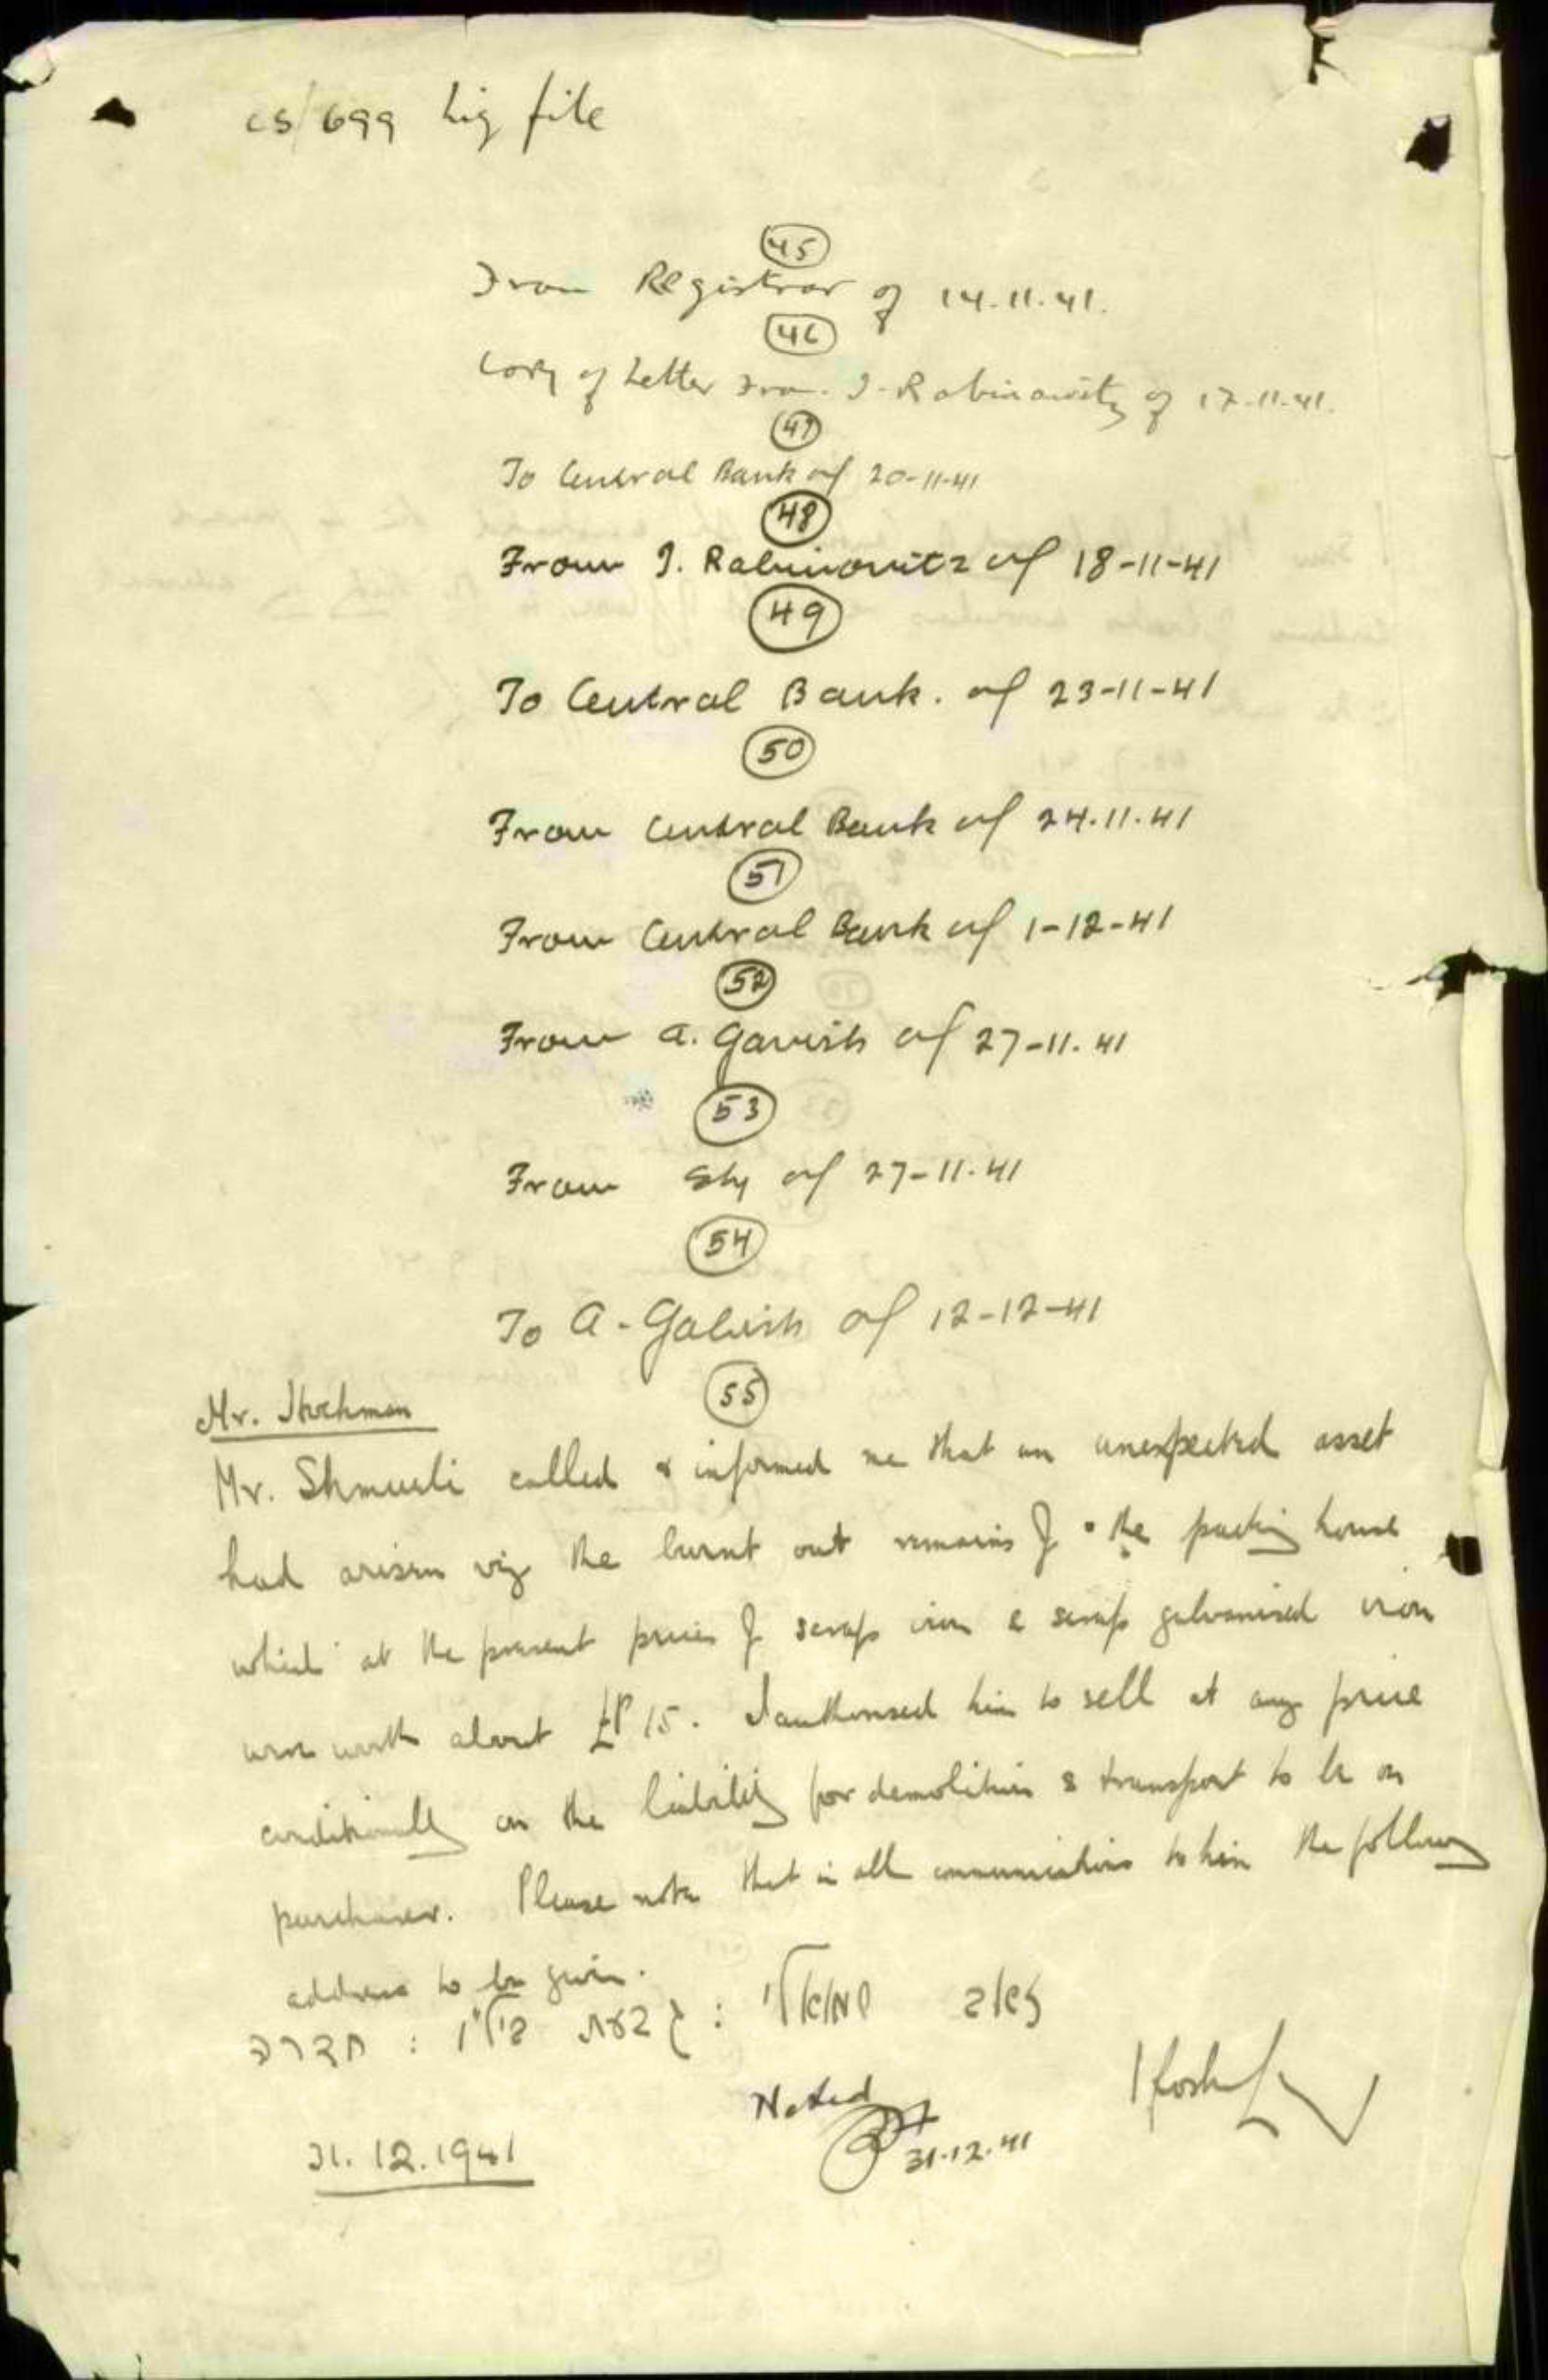 cs/699 Liq file
45
From Registrar of 14.11.41.
46
Copy of Letter From I. Rabinowitz of 17-11-41.
47
To Central Bank of 20-11-41
48
From I. Rabinowitz of 18-11-41
49
To Central Bank. of 23-11-41
50
From Central Bank of 24.11.41
51
From Central Bank of 1-12-41
52
From A. Gavish of 27-11.41
53
From of 27-11.41
54
To A. Gavish of 12-12-41
55
Mr.
Mr. Shmueli called & informed me that an unexpected asset
had arisen viz the burnt out remains of the packing house
which at the present prices of scrap iron & scrap galvanised iron
were worth about £P 15. I authorised him to sell at any price
conditionally on the liability for demolition & transport to be on
purchaser. Please note that in all communications to him the following
address to be given.
שמואלי : גבעת ביל"ו : חדרה
Noted
31.12.41
31.12.1941